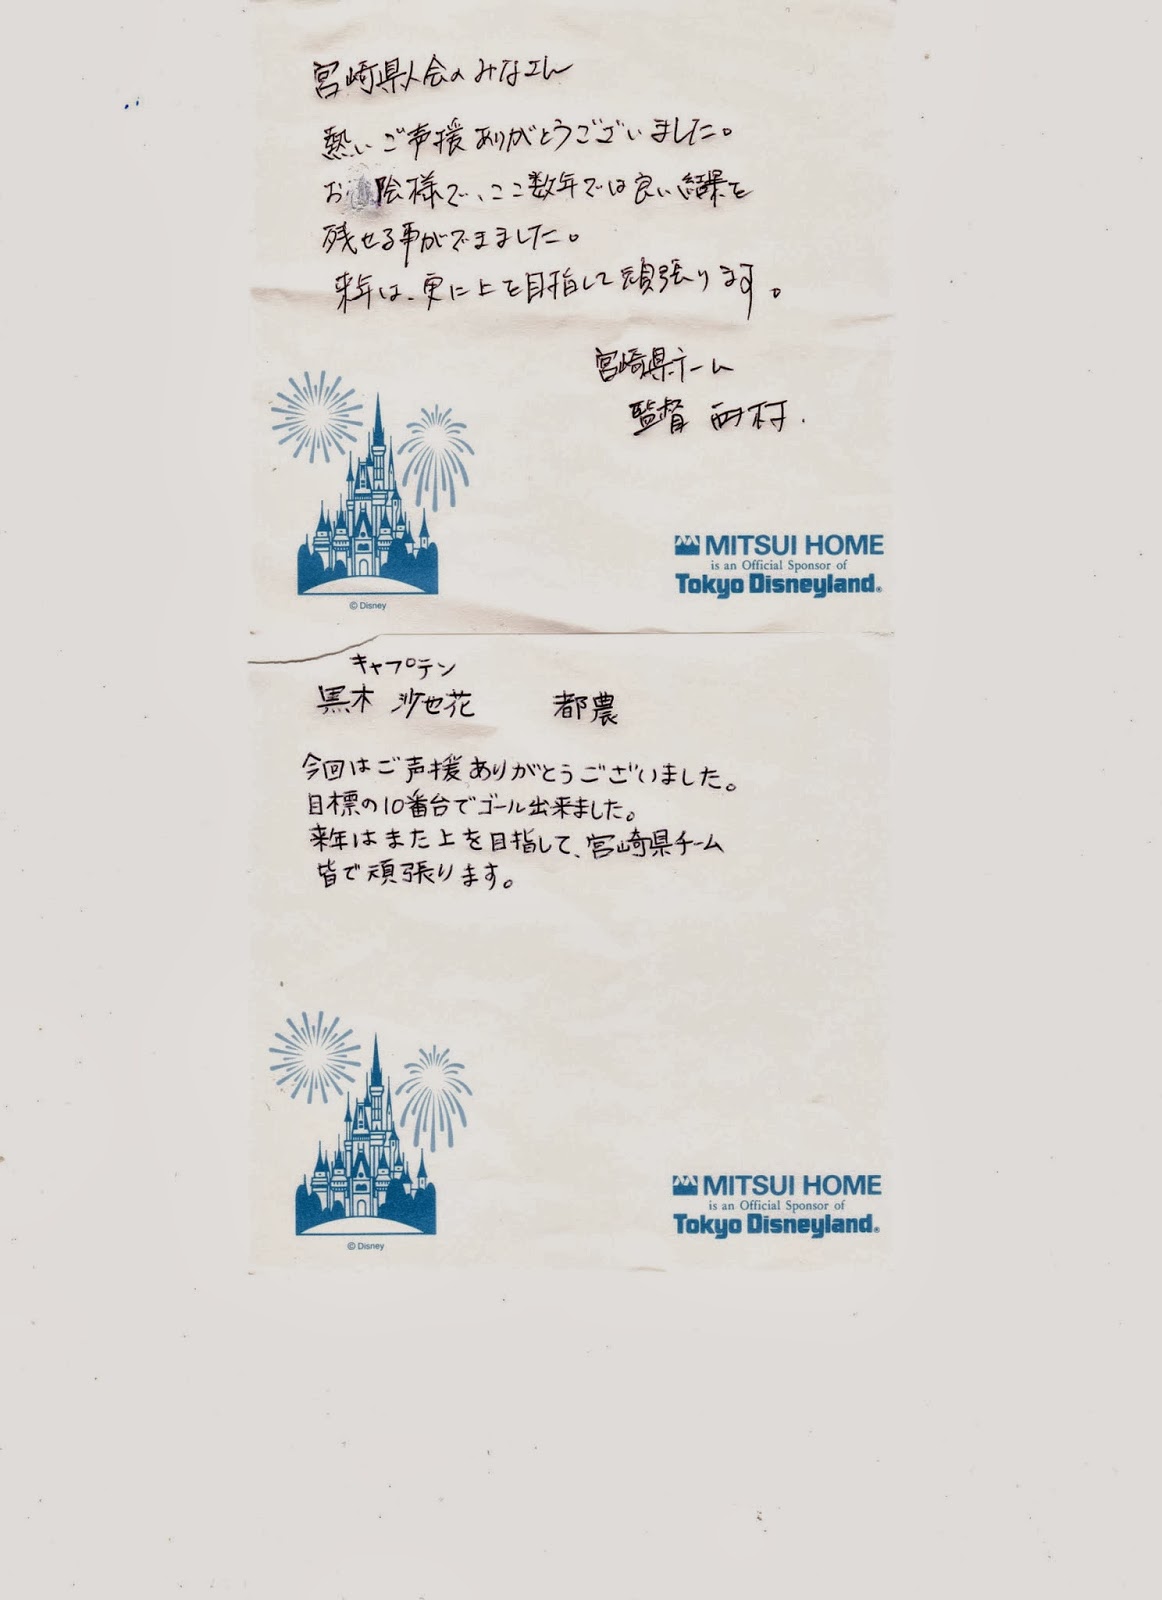 宮崎県人会のみなさん
熱いご声援ありがとうございました。
お陰様で、ここ数年では良い結果を
残せる事ができました。
来年は、更に上を目指して頑張ります。
宮崎県チーム
監督 西村.
© Disney
MITSUI HOME
is an Official Sponsor of
Tokyo Disneyland®
キャプテン
黒木 沙也花 都農
今回はご声援ありがとうございました。
目標の10番台でゴール出来ました。
来年はまた上を目指して、宮崎県チーム
皆で頑張ります。
© Disney
MITSUI HOME
is an Official Sponsor of
Tokyo Disneyland®